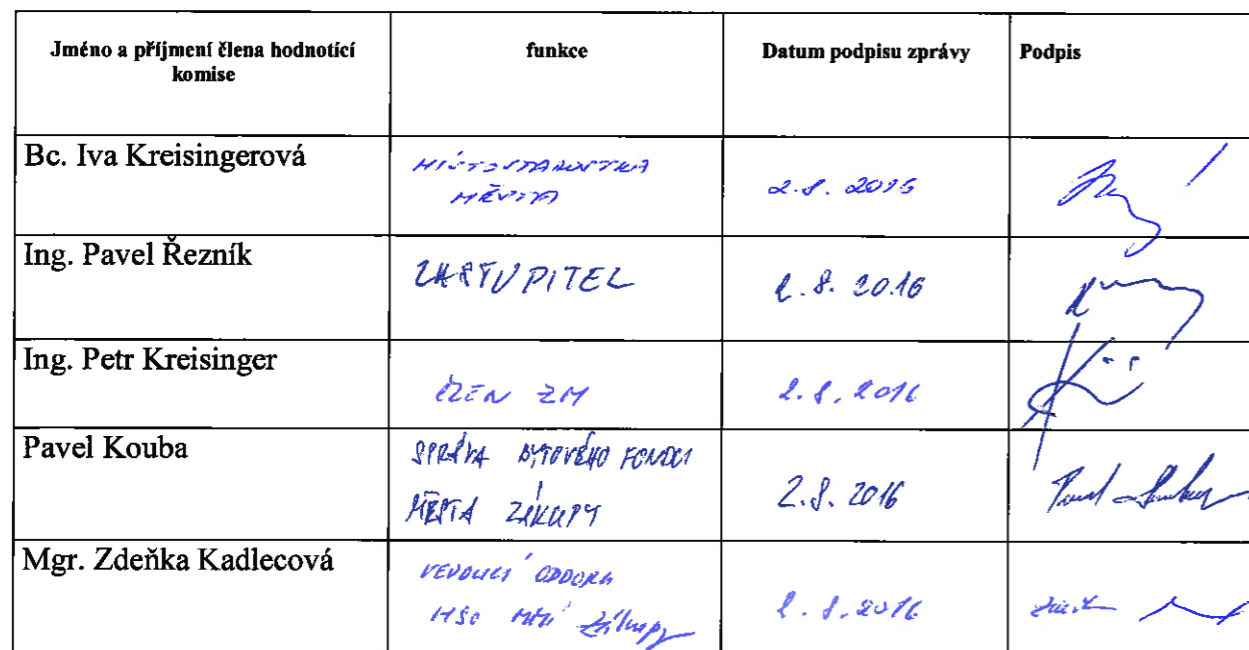 Jméno a příjmení člena hodnotící
komise
funkce
Datum podpisu zprávy
Podpis
Bc. Iva Kreisingerová
MÍSTOSTAROSTKA
MĚSTA
2.8. 2016
Ing. Pavel Řezník
ZASTUPITEL
2.8.2016
Ing. Petr Kreisinger
ČLEN ZM
2.8.2016
Pavel Kouba
SPRÁVA BYTOVÉHO FONDU
MĚSTA ZÁKUPY
2.8.2016
Mgr. Zdeňka Kadlecová
VEDOUCÍ ODBORU
Zákupy
2.8.2016